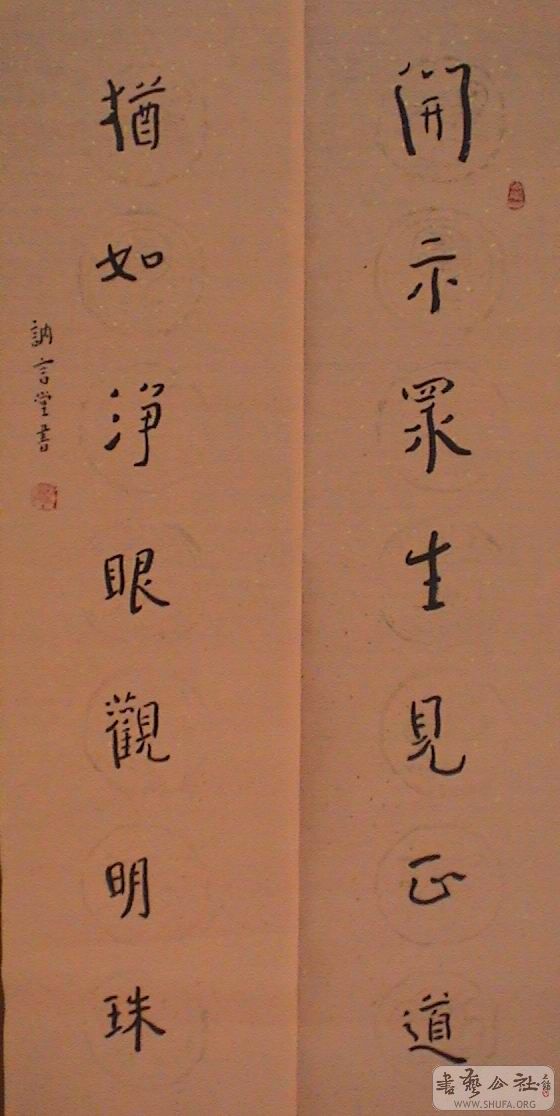 開示眾生見正道
猶如淨眼觀明珠
訥言堂書
書藝公社
WWW.SHUFA.ORG